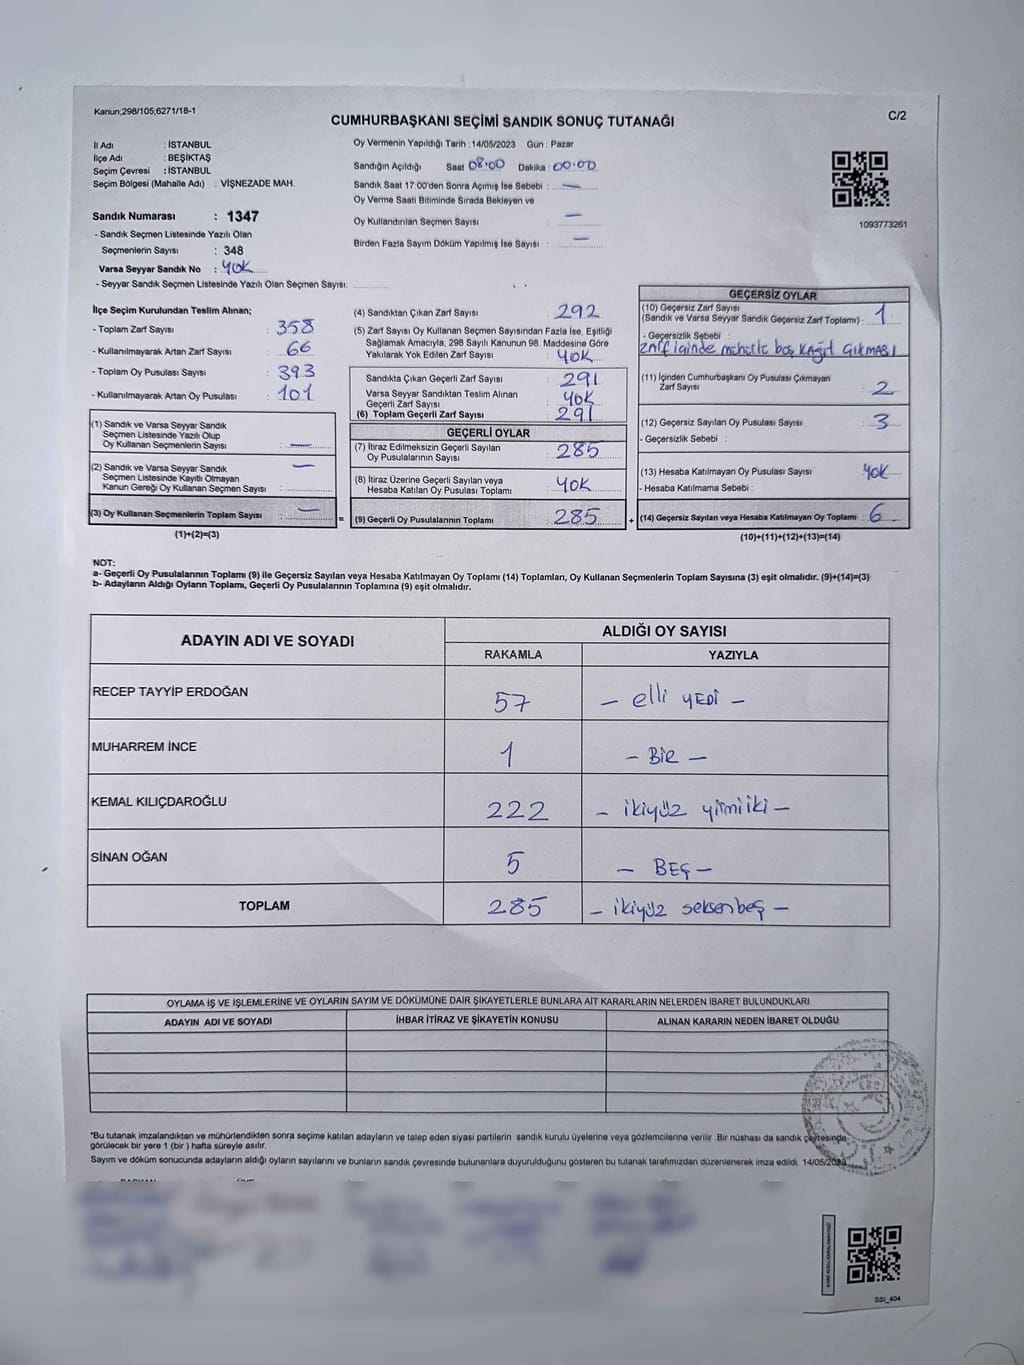 Kanun;298/105;6271/18-1
C/2
CUMHURBAŞKANI SEÇİMİ SANDIK SONUÇ TUTANAĞI
İl Adı : İSTANBUL
İlçe Adı : BEŞİKTAŞ
Seçim Çevresi : İSTANBUL
Seçim Bölgesi (Mahalle Adı) : VİŞNEZADE MAH.
Sandık Numarası : 1347
- Sandık Seçmen Listesinde Yazılı Olan
Seçmenlerin Sayısı : 348
Varsa Seyyar Sandık No : YOK
- Seyyar Sandık Seçmen Listesinde Yazılı Olan Seçmen Sayısı:
Oy Vermenin Yapıldığı Tarih : 14/05/2023 Gün : Pazar
Sandığın Açıldığı Saat 08:00 Dakika : 00:00
Sandık Saat 17:00'den Sonra Açımış İse Sebebi : —
Oy Verme Saati Bitiminde Sırada Bekleyen ve
Oy Kullandırılan Seçmen Sayısı : —
Birden Fazla Sayım Döküm Yapılmış İse Sayısı : —
1093773261
İlçe Seçim Kurulundan Teslim Alınan;
- Toplam Zarf Sayısı : 358
- Kullanılmayarak Artan Zarf Sayısı : 66
- Toplam Oy Pusulası Sayısı : 393
- Kullanılmayarak Artan Oy Pusulası : 101
(1) Sandık ve Varsa Seyyar Sandık
Seçmen Listesinde Yazılı Olup
Oy Kullanan Seçmenlerin Sayısı : —
(2) Sandık ve Varsa Seyyar Sandık
Seçmen Listesinde Kayıtlı Olmayan
Kanun Gereği Oy Kullanan Seçmen Sayısı : —
(3) Oy Kullanan Seçmenlerin Toplam Sayısı : —
(1)+(2)=(3)
(4) Sandıktan Çıkan Zarf Sayısı : 292
(5) Zarf Sayısı Oy Kullanan Seçmen Sayısından Fazla İse, Eşitliği
Sağlamak Amacıyla, 298 Sayılı Kanunun 98. Maddesine Göre
Yakılarak Yok Edilen Zarf Sayısı : YOK
Sandıkta Çıkan Geçerli Zarf Sayısı : 291
Varsa Seyyar Sandıktan Teslim Alınan
Geçerli Zarf Sayısı : YOK
(6) Toplam Geçerli Zarf Sayısı : 291
GEÇERLİ OYLAR
(7) İtiraz Edilmeksizin Geçerli Sayılan
Oy Pusulalarının Sayısı : 285
(8) İtiraz Üzerine Geçerli Sayılan veya
Hesaba Katılan Oy Pusulası Toplamı : YOK
= (9) Geçerli Oy Pusulalarının Toplamı : 285
GEÇERSİZ OYLAR
(10) Geçersiz Zarf Sayısı
(Sandık ve Varsa Seyyar Sandık Geçersiz Zarf Toplamı) : 1
- Geçersizlik Sebebi :
zarf içinde boş KAĞIT ÇIKMASI
(11) İçinden Cumhurbaşkanı Oy Pusulası Çıkmayan
Zarf Sayısı : 2
(12) Geçersiz Sayılan Oy Pusulası Sayısı : 3
- Geçersizlik Sebebi :
(13) Hesaba Katılmayan Oy Pusulası Sayısı : YOK
- Hesaba Katılmama Sebebi :
+ (14) Geçersiz Sayılan veya Hesaba Katılmayan Oy Toplamı : 6
(10)+(11)+(12)+(13)=(14)
NOT:
a- Geçerli Oy Pusulalarının Toplamı (9) ile Geçersiz Sayılan veya Hesaba Katılmayan Oy Toplamı (14) Toplamları, Oy Kullanan Seçmenlerin Toplam Sayısına (3) eşit olmalıdır. (9)+(14)=(3)
b- Adayların Aldığı Oyların Toplamı, Geçerli Oy Pusulalarının Toplamına (9) eşit olmalıdır.
ADAYIN ADI VE SOYADI
ALDIĞI OY SAYISI
RAKAMLA YAZIYLA
RECEP TAYYİP ERDOĞAN 57 — elli YEDİ —
MUHARREM İNCE 1 — BİR —
KEMAL KILIÇDAROĞLU 222 — ikiyüz yirmiiki —
SİNAN OĞAN 5 — BEŞ —
TOPLAM 285 — ikiyüz seksenbeş —
OYLAMA İŞ VE İŞLEMLERİNE VE OYLARIN SAYIM VE DÖKÜMÜNE DAİR ŞİKAYETLERLE BUNLARA AİT KARARLARIN NELERDEN İBARET BULUNDUKLARI
ADAYIN ADI VE SOYADI İHBAR İTİRAZ VE ŞİKAYETİN KONUSU ALINAN KARARIN NEDEN İBARET OLDUĞU
*Bu tutanak imzalandıktan ve mühürlendikten sonra seçime katılan adayların ve talep eden siyasi partilerin sandık kurulu üyelerine veya gözlemcilerine verilir. Bir nüshası da sandık çevresinde
görülecek bir yere 1 (bir ) hafta süreyle asılır.
Sayım ve döküm sonucunda adayların aldığı oyların sayılarını ve bunların sandık çevresinde bulunanlara duyurulduğunu gösteren bu tutanak tarafımızdan düzenlenerek imza edildi. 14/05/2023
SSI_404